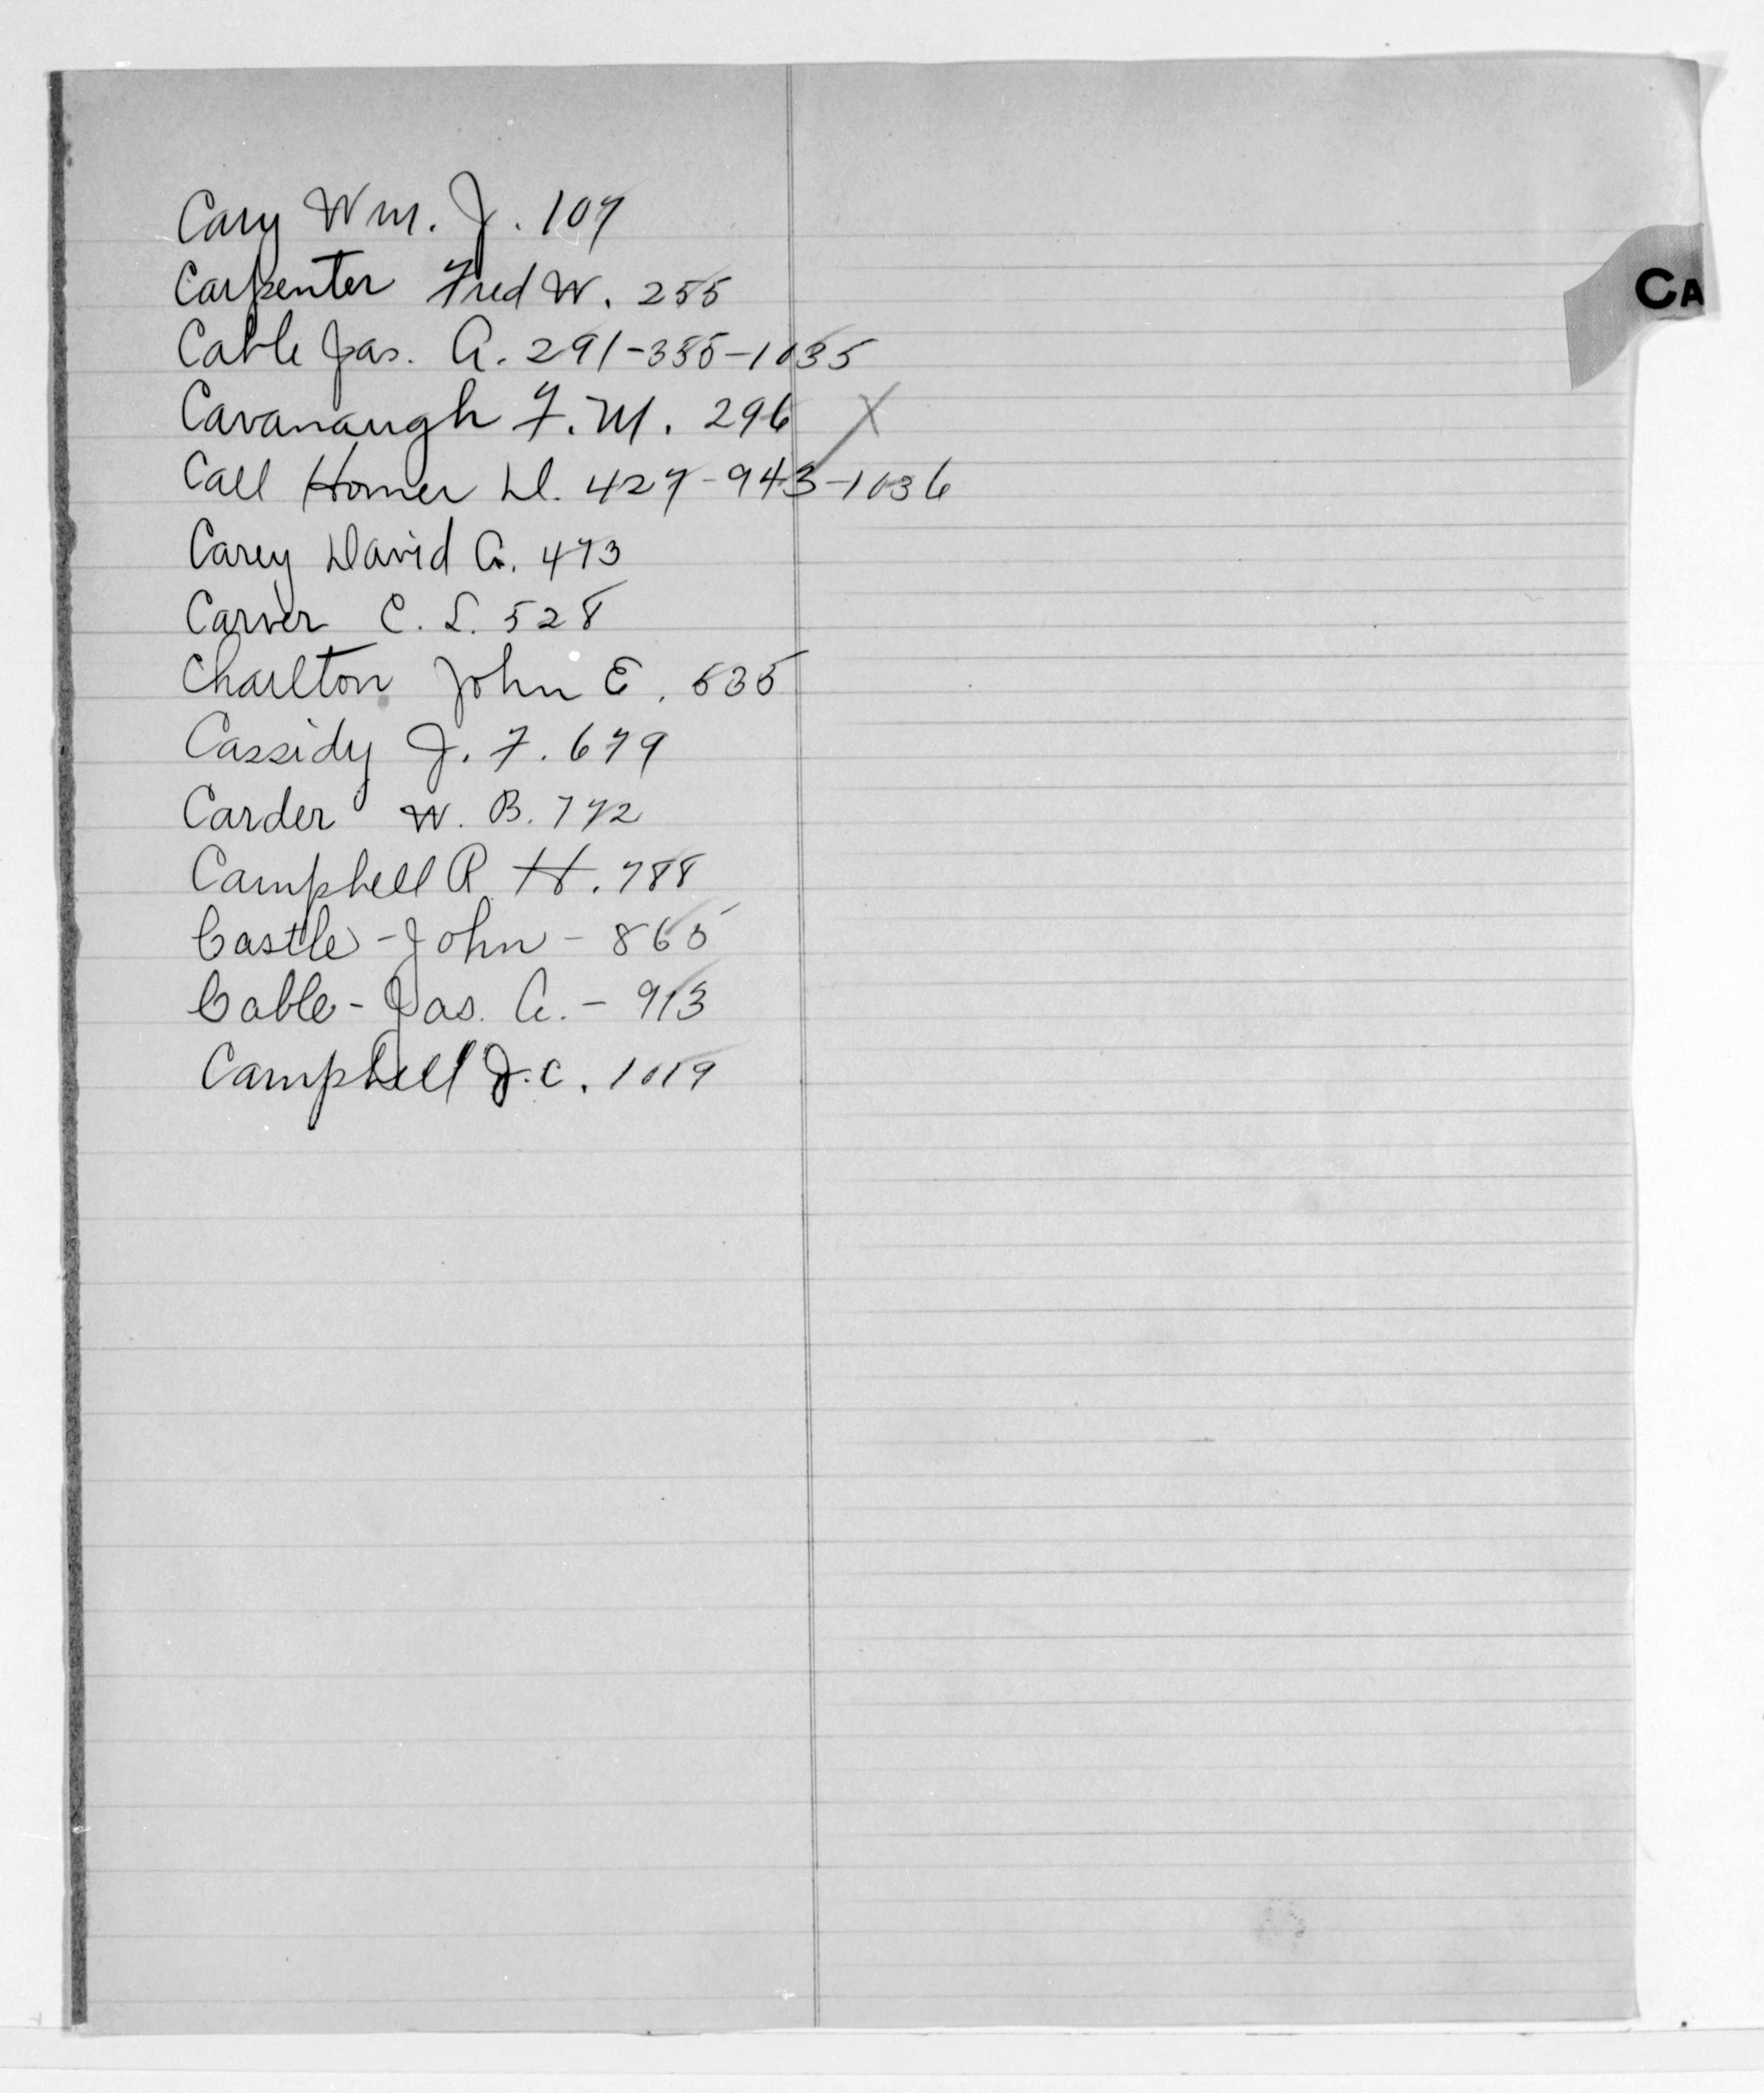 CA
Cary Wm. J. 107
Carpenter Fred W. 255
Cable Jas. A. 291-355-1035
Cavanaugh F. M. 296 X
Call Homer D. 427-943-1036
Carey David A. 473
Carver C. L. 528
Charlton John E. 535
Cassidy J. F. 679
Carder W. B. 772
Campbell R. H. 788
Castle - John - 865
Cable - Jas. A. - 913
Campbell J. C. 1019